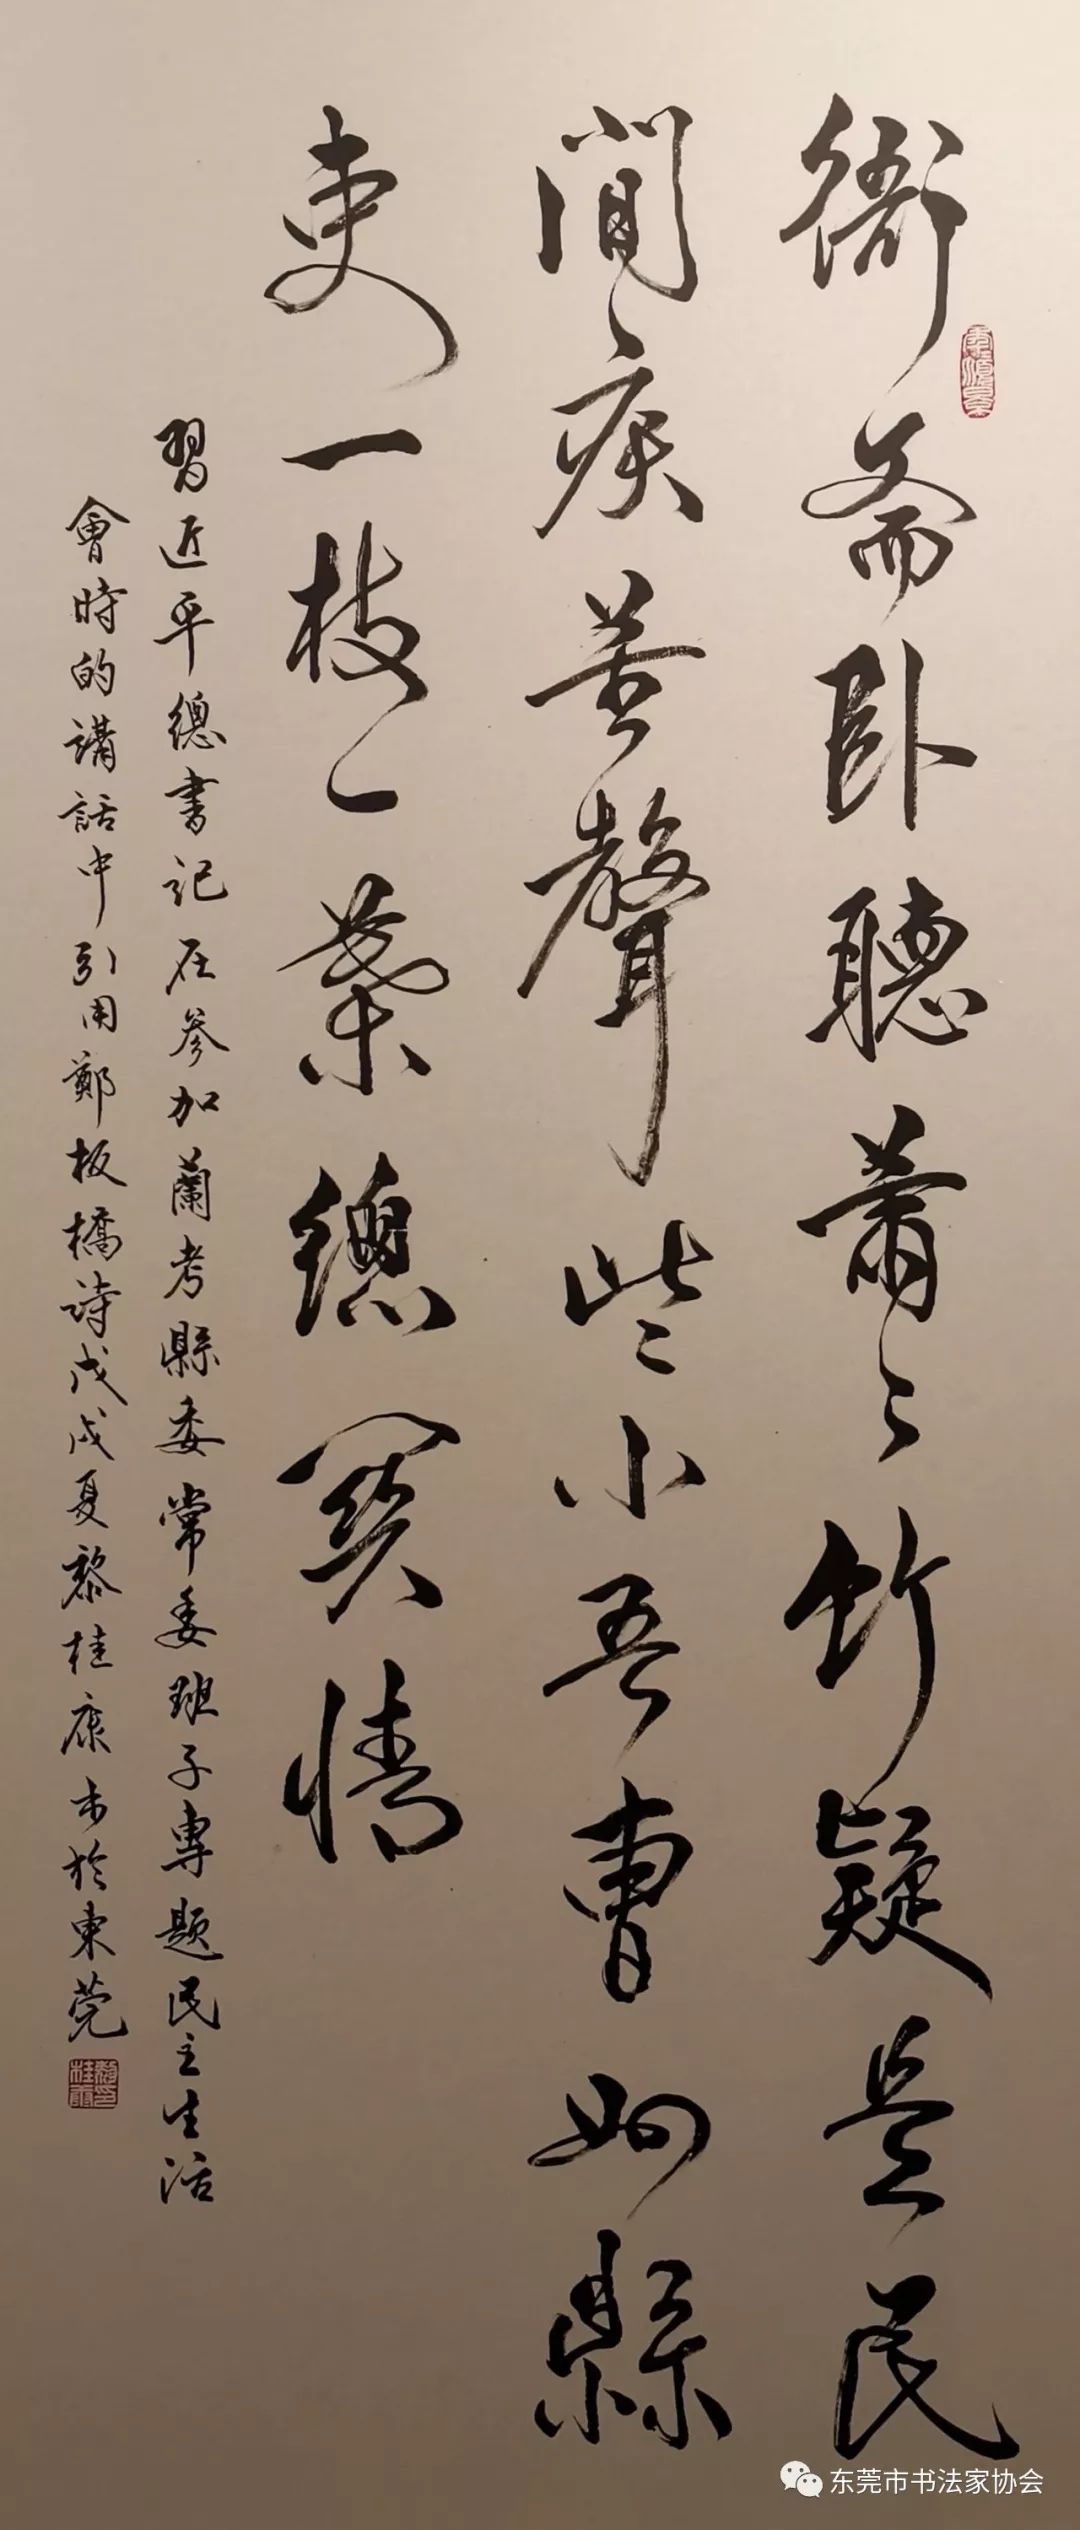 衙斋卧聽蕭々竹疑是民
間疾苦聲些小吾曹州縣
吏一枝一葉總関情
習近平總書記在参加蘭考縣委常委班子專题民主生活
會時的講話中引用鄭板橋詩戊戌夏黎桂康书於東莞
东莞市书法家协会